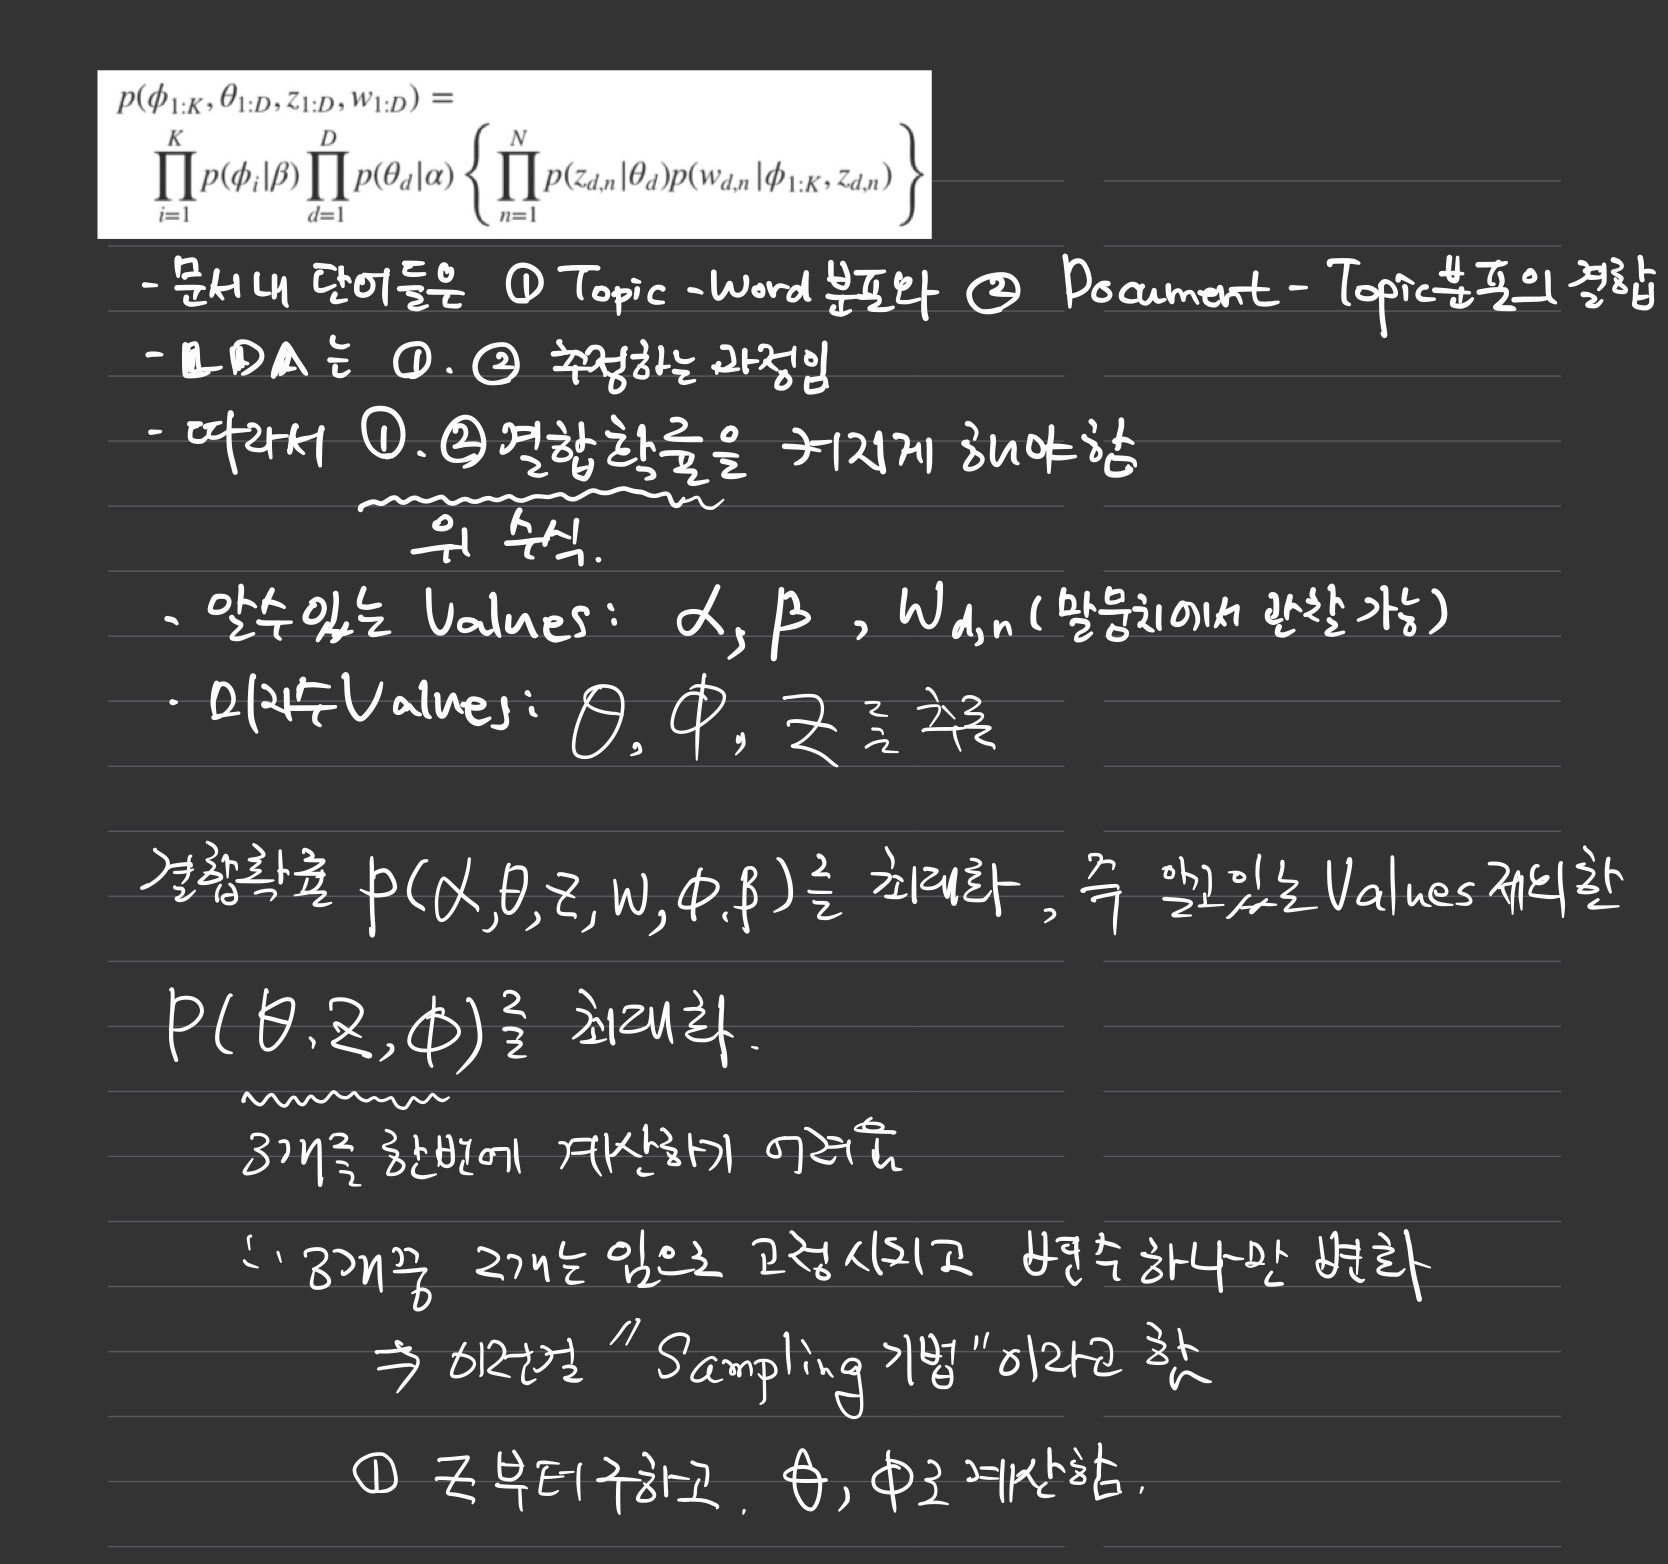 p(ϕ1:K, θ1:D, z1:D, w1:D) =
∏_{i=1}^{K} p(ϕi|β) ∏_{d=1}^{D} p(θd|α) { ∏_{n=1}^{N} p(zd,n|θd)p(wd,n|ϕ1:K, zd,n) }
- 문서내 단어들은 ① Topic-Word 분포와 ② Document-Topic분포의 결합
- LDA는 ①.② 추정하는 과정임
- 따라서 ①.② 결합확률을 커지게 해야함
위 수식.
· 알수있는 Values: α, β, Wd,n (말뭉치에서 관찰 가능)
· 미지수 Values: θ, ϕ, z를 추론
결합확률 p(α,θ,z,w,ϕ,β)를 최대화, 즉 알고있는 Values 제외한
P(θ.z,ϕ)를 최대화.
3개를 한번에 계산하기 어려움
∴ 3개중 2개는 임의로 고정시키고 변수하나만 변화
⇒ 이런걸 "Sampling 기법"이라고 함
① z부터 구하고. θ, ϕ로 계산함.